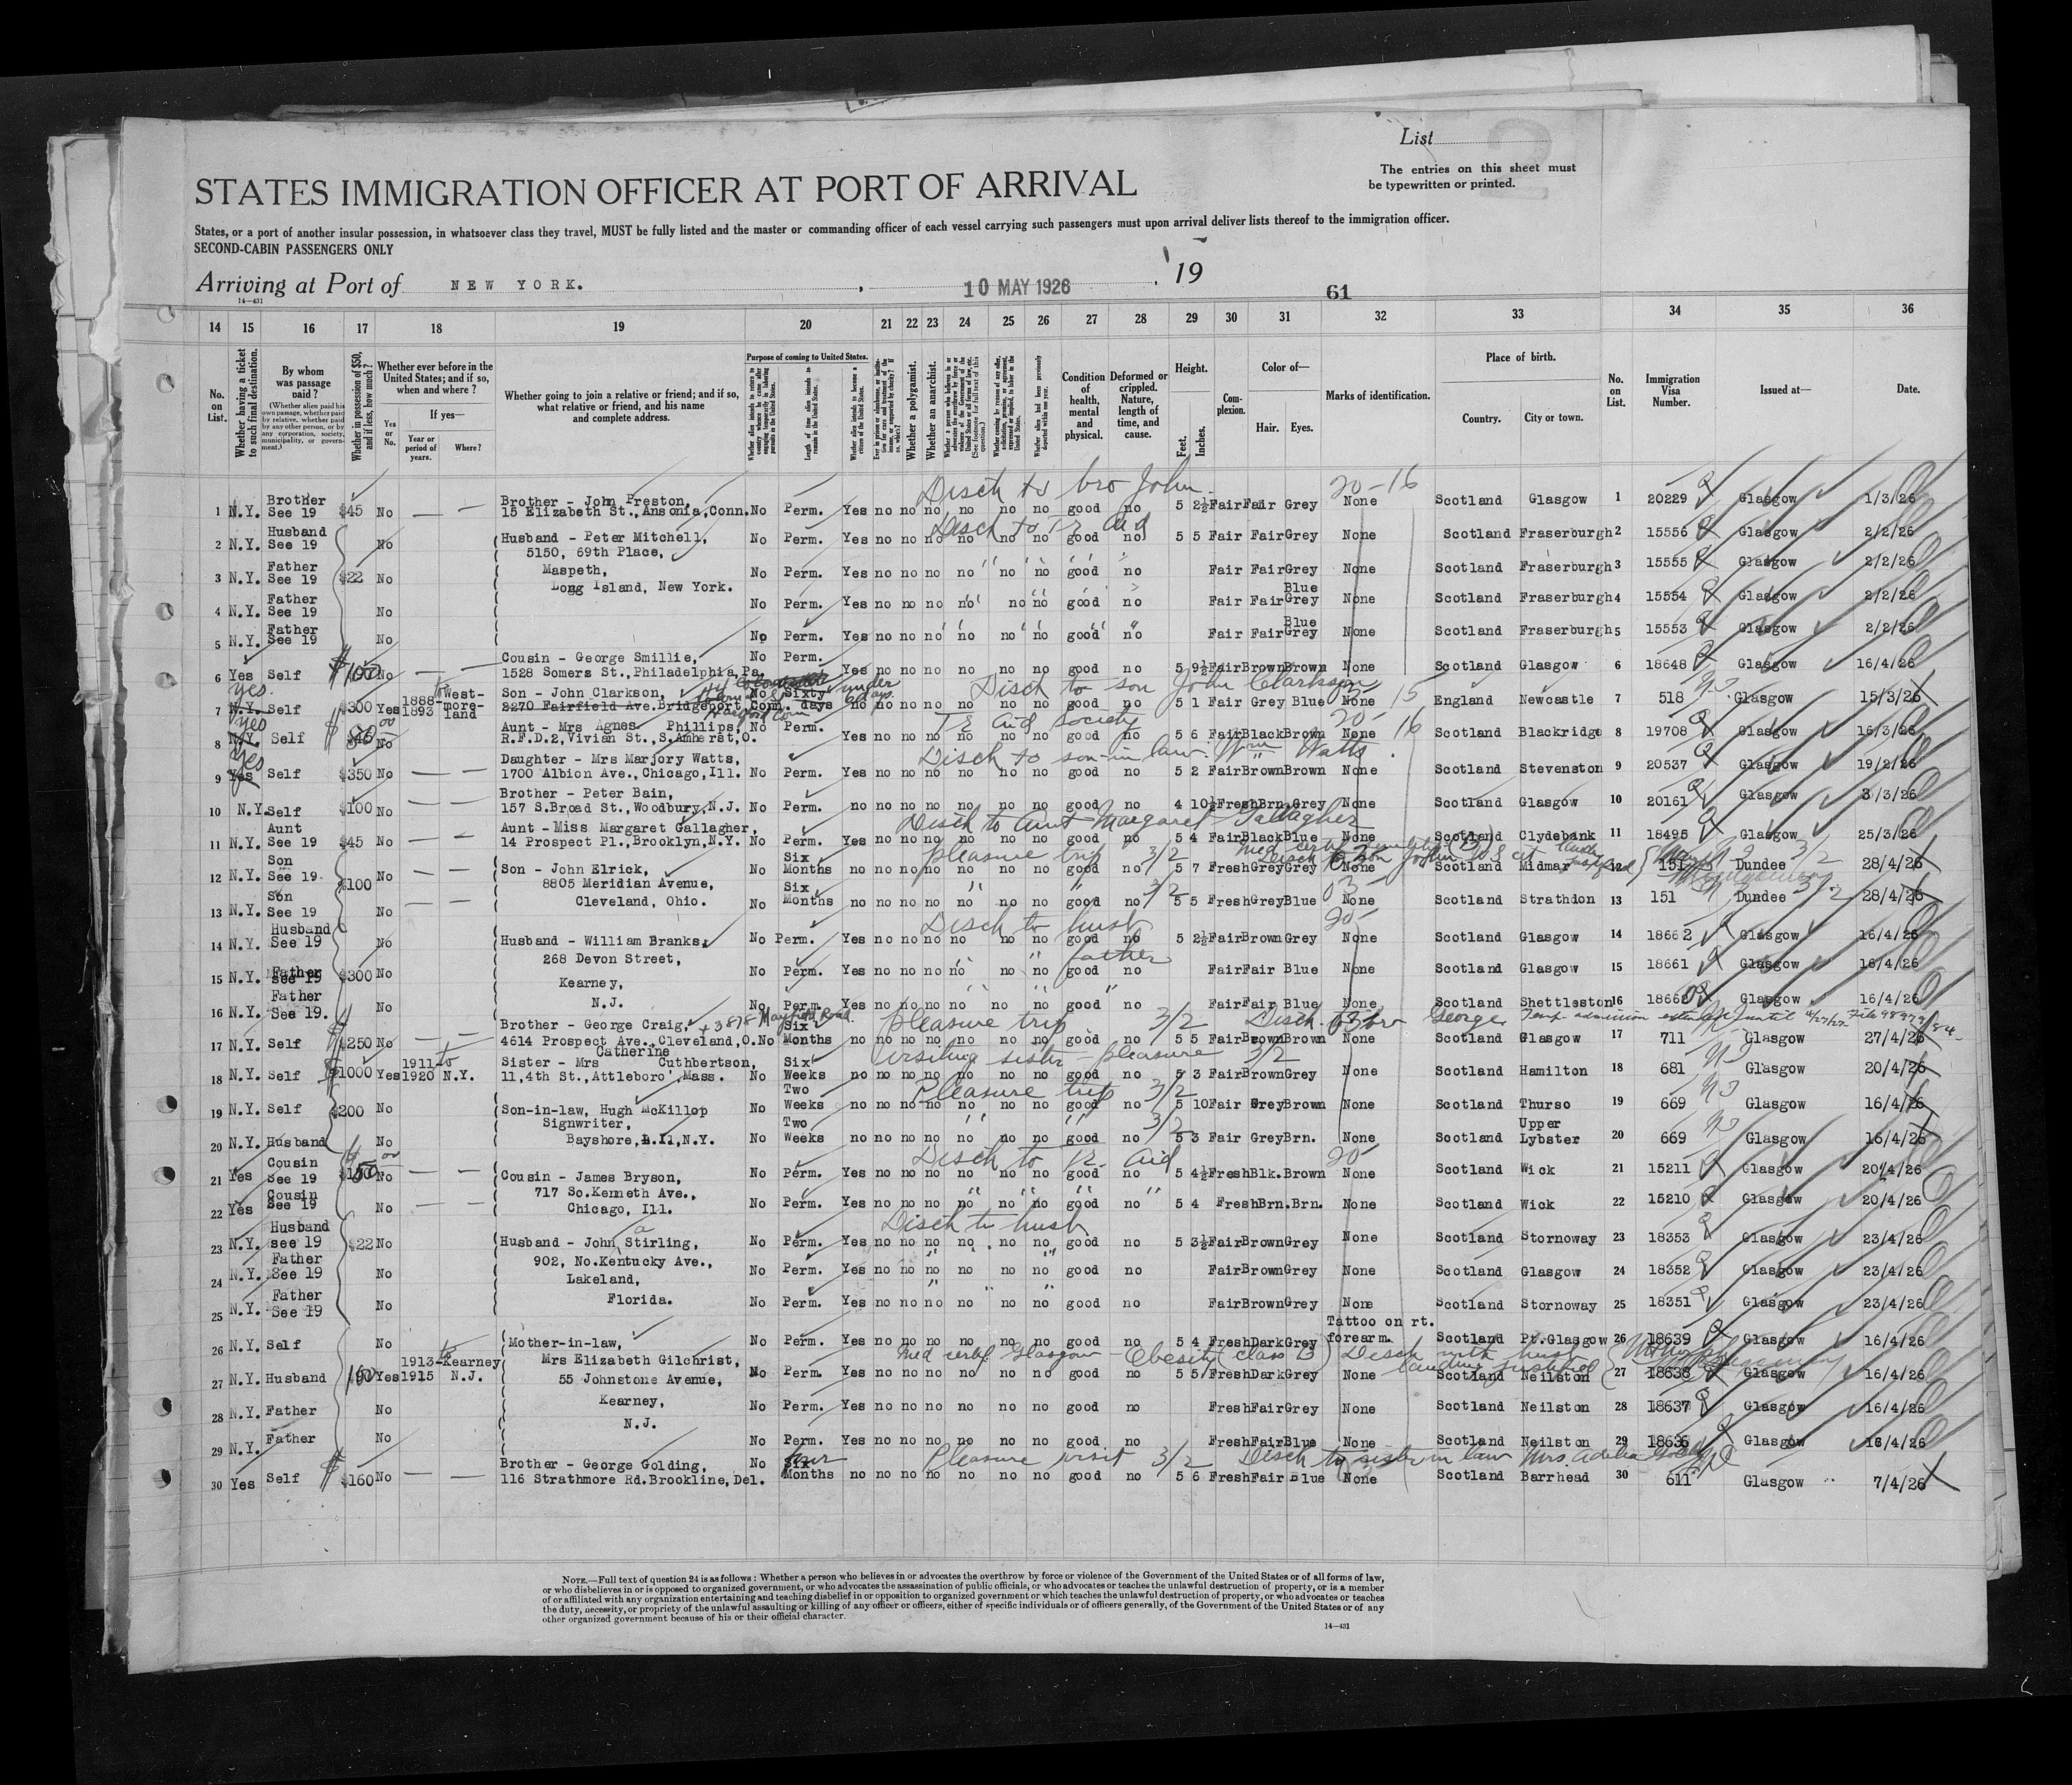 List
The entries on this sheet must
be typewritten or printed.
STATES IMMIGRATION OFFICER AT PORT OF ARRIVAL
States, or a port of another insular possession, in whatsoever class they travel, MUST be fully listed and the master or commanding officer of each vessel carrying such passengers must upon arrival deliver lists thereof to the immigration officer.
SECOND-CABIN PASSENGERS ONLY
Arriving at Port of NEW YORK. , 10 MAY 1926 , 19
14—431
61
14 15 16 17 18 19 20 21 22 23 24 25 26 27 28 29 30 31 32 33 34 35 36
No. on List.
Whether having a ticket to such final destination.
By whom was passage paid?
(Whether alien paid his own passage, whether paid by relative, whether paid by any other person, or by any corporation, society, municipality, or government.)
Whether in possession of $50, and if less, how much?
Whether ever before in the United States; and if so, when and where?
Yes or No.
If yes—
Year or period of years.
Where?
Whether going to join a relative or friend; and if so, what relative or friend, and his name and complete address.
Purpose of coming to United States.
Length of time alien intends to remain in the United States.
Whether alien intends to become a citizen of the United States.
Whether a polygamist.
Whether an anarchist.
Condition of health, mental and physical.
Deformed or crippled. Nature, length of time, and cause.
Height.
Feet. Inches.
Complexion.
Color of—
Hair. Eyes.
Marks of identification.
Place of birth.
Country. City or town.
No. on List.
Immigration Visa Number.
Issued at—
Date.
Disch to bro John. 20-16
1 N.Y. Brother See 19 $45 No Brother - John Preston, 15 Elizabeth St., Ansonia, Conn. No Perm. Yes no no no no no no good no 5 2½ Fair Fair Grey None Scotland Glasgow 1 20229 Glasgow 1/3/26
Disch to Tr. Aid
2 N.Y. Husband See 19 No Husband - Peter Mitchell, No Perm. Yes no no no no no no good no 5 5 Fair Fair Grey None Scotland Fraserburgh 2 15556 Glasgow 2/2/26
5150, 69th Place,
3 N.Y. Father See 19 $22 No Maspeth, No Perm. Yes no no no no no no good no Fair Fair Grey None Scotland Fraserburgh 3 15555 Glasgow 2/2/26
Long Island, New York.
4 N.Y. Father See 19 No No Perm. Yes no no no no no no good no Fair Fair Blue Grey None Scotland Fraserburgh 4 15554 Glasgow 2/2/26
5 N.Y. Father See 19 No No Perm. Yes no no no no no no good no Fair Fair Blue Grey None Scotland Fraserburgh 5 15553 Glasgow 2/2/26
6 Yes Self $100 No Cousin - George Smillie, 1528 Somers St., Philadelphia, Pa. No Perm. Yes no no no no no no good no 5 9½ Fair Brown Brown None Scotland Glasgow 6 18648 Glasgow 16/4/26
yes Disch to son John Clarkson 15
7 N.Y. Self $300 Yes 1888-1893 Westmoreland Son - John Clarkson, 2270 Fairfield Ave. Bridgeport, Conn. No Sixty days no no no no no no no good no 5 1 Fair Grey Blue None England Newcastle 7 518 Glasgow 15/3/26
yes Tr Aid Society 20- 16
8 N.Y. Self No Aunt - Mrs Agnes Phillips, R.F.D.2, Vivian St., S.Amherst, O. No Perm. Yes no no no no no no good no 5 6 Fair Black Brown None Scotland Blackridge 8 19708 Glasgow 16/3/26
yes Disch to son-in-law Wm Watts.
9 Yes Self $350 No Daughter - Mrs Marjory Watts, 1700 Albion Ave., Chicago, Ill. No Perm. Yes no no no no no no good no 5 2 Fair Brown Brown None Scotland Stevenston 9 20537 Glasgow 19/2/26
10 N.Y. Self $100 No Brother - Peter Bain, 157 S.Broad St., Woodbury, N.J. No Perm. no no no no no no no good no 4 10½ Fresh Brn. Grey None Scotland Glasgow 10 20161 Glasgow 3/3/26
Disch to Aunt Margaret Gallagher
11 N.Y. Aunt See 19 $45 No Aunt - Miss Margaret Gallagher, 14 Prospect Pl., Brooklyn, N.Y. No Perm. Yes no no no no no no good no 5 4 Fair Black Blue None Scotland Clydebank 11 18495 Glasgow 25/3/26
Pleasure trip 3/2 Med cert senility (B)
12 N.Y. Son See 19 $100 No Son - John Elrick, No Six Months no no no no no no no good no 5 7 Fresh Grey Grey None Scotland Midmar 12 151 Dundee 28/4/26
8805 Meridian Avenue,
13 N.Y. Son See 19 No Cleveland, Ohio. No Six Months no no no no no no no good no 5 5 Fresh Grey Blue None Scotland Strathdon 13 151 Dundee 28/4/26
Disch to husb 20-
14 N.Y. Husband See 19 No Husband - William Branks, No Perm. Yes no no no no no no good no 5 2½ Fair Brown Grey None Scotland Glasgow 14 18662 Glasgow 16/4/26
268 Devon Street, father
15 N.Y. Father See 19 $300 No Kearney, No Perm. Yes no no no no no no good no Fair Fair Blue None Scotland Glasgow 15 18661 Glasgow 16/4/26
16 N.Y. Father See 19. No N.J. No Perm. Yes no no no no no no good no Fair Fair Blue None Scotland Shettleston 16 Glasgow 16/4/26
+ 3878 Mayfield Road Pleasure trip 3/2 Disch to bro George Temp. admission extended until
17 N.Y. Self $250 No Brother - George Craig, 4614 Prospect Ave., Cleveland, O. No Six Months no no no no no no no good no 5 5 Fair Brown Brown None Scotland Glasgow 17 711 Glasgow 27/4/26
Visiting sister - pleasure 3/2
18 N.Y. Self $1000 Yes 1911-to 1920 N.Y. Sister - Mrs Catherine Cuthbertson, 11, 4th St., Attleboro', Mass. No Six Weeks no no no no no no no good no 5 3 Fair Brown Grey None Scotland Hamilton 18 681 Glasgow 20/4/26
Pleasure trip 3/2
19 N.Y. Self $200 No Son-in-law, Hugh McKillop No Two Weeks no no no no no no no good no 5 10 Fair Grey Brown None Scotland Thurso 19 669 Glasgow 16/4/26
Signwriter, 3/2
20 N.Y. Husband No Bayshore, L.I., N.Y. No Two Weeks no no no no no no no good no 5 3 Fair Grey Brn. None Scotland Upper Lybster 20 669 Glasgow 16/4/26
Disch to Tr. Aid 20-
21 Yes Cousin See 19 No Cousin - James Bryson, No Perm. Yes no no no no no no good no 5 4½ Fresh Blk. Brown None Scotland Wick 21 15211 Glasgow 20/4/26
717 So.Kenneth Ave.,
22 Yes Cousin See 19 No Chicago, Ill. No Perm. Yes no no no no no no good no 5 4 Fresh Brn. Brn. None Scotland Wick 22 15210 Glasgow 20/4/26
Disch to husb
23 N.Y. Husband see 19 $22 No Husband - John Stirling, No Perm. Yes no no no no no no good no 5 3½ Fair Brown Grey None Scotland Stornoway 23 18353 Glasgow 23/4/26
902, No.Kentucky Ave.,
24 N.Y. Father See 19 No Lakeland, No Perm. Yes no no no no no no good no Fair Brown Grey None Scotland Glasgow 24 18352 Glasgow 23/4/26
25 N.Y. Father See 19 No Florida. No Perm. Yes no no no no no no good no Fair Brown Grey None Scotland Stornoway 25 18351 Glasgow 23/4/26
26 N.Y. Self No Mother-in-law, No Perm. Yes no no no no no no good no 5 4 Fresh Dark Grey Tattoo on rt. forearm. Scotland Pt.Glasgow 26 18639 Glasgow 16/4/26
Med cert Glasgow - Obesity (Class B) Disch with husb landing justified
27 N.Y. Husband Yes 1913-to 1915 Kearney N.J. Mrs Elizabeth Gilchrist, 55 Johnstone Avenue, No Perm. Yes no no no no no no good no 5 5 Fresh Dark Grey None Scotland Neilston 27 18638 Glasgow 16/4/26
28 N.Y. Father No Kearney, No Perm. Yes no no no no no no good no Fresh Fair Grey None Scotland Neilston 28 18637 Glasgow 16/4/26
N.J.
29 N.Y. Father No No Perm. Yes no no no no no no good no Fresh Fair Blue None Scotland Neilston 29 18636 Glasgow 16/4/26
Pleasure visit 3/2 Disch to sister in law Mrs. Adelia
30 Yes Self $160 No Brother - George Golding, 116 Strathmore Rd. Brookline, Del. No Six Months no no no no no no no good no 5 6 Fresh Fair Blue None Scotland Barrhead 30 611 Glasgow 7/4/26
NOTE.—Full text of question 24 is as follows: Whether a person who believes in or advocates the overthrow by force or violence of the Government of the United States or of all forms of law,
or who disbelieves in or is opposed to organized government, or who advocates the assassination of public officials, or who advocates or teaches the unlawful destruction of property, or is a member
of or affiliated with any organization entertaining and teaching disbelief in or opposition to organized government or which teaches the unlawful destruction of property, or who advocates or teaches
the duty, necessity, or propriety of the unlawful assaulting or killing of any officer or officers, either of specific individuals or of officers generally, of the Government of the United States or of any
other organized government because of his or their official character.
14—431